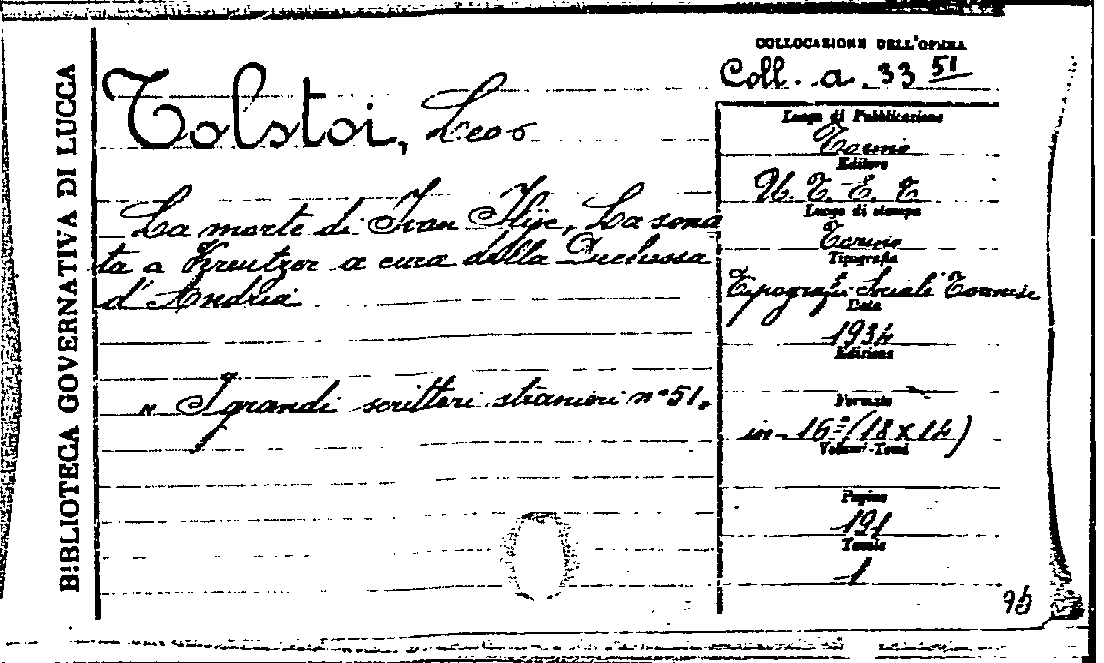 BIBLIOTECA GOVERNATIVA DI LUCCA
Tolstoi, Leo
La morte di Ivan Ilijc, La sona
ta a Kreutzer a cura della Duchessa
d'Andria
"I grandi scrittori stranieri n° 51"
COLLOCAZIONE DELL'OPERA
Coll. a. 33 51
Luogo di Pubblicazione
Torino
Editore
U. T. E. T.
Luogo di stampa
Torino
Tipografia
Tipografia Sociale Torinese
Data
1934
Edizione
Formato
in-16° (18 x 12)
Volumi-Tomi
Pagine
191
Tavole
1